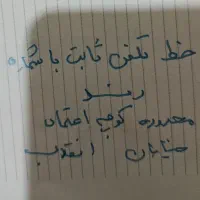 خط تلفن ثابت با شماره
رند
محدوده کوچه اعتماد
خیابان انقلاب